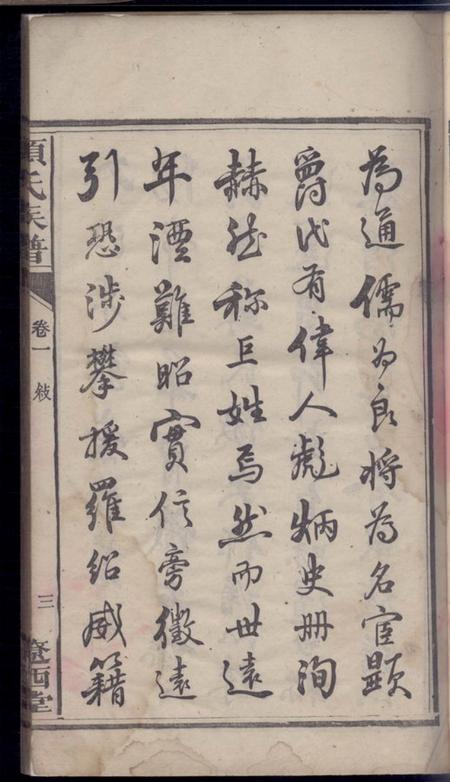 為通儒為良将為名宦顯
爵代有偉人彪炳史冊洵
赫然称巨姓焉然而世遠
年湮難昭實信旁徵遠
引恐涉攀援羅紹威籍
氏族譜
卷一
敘
三
堂